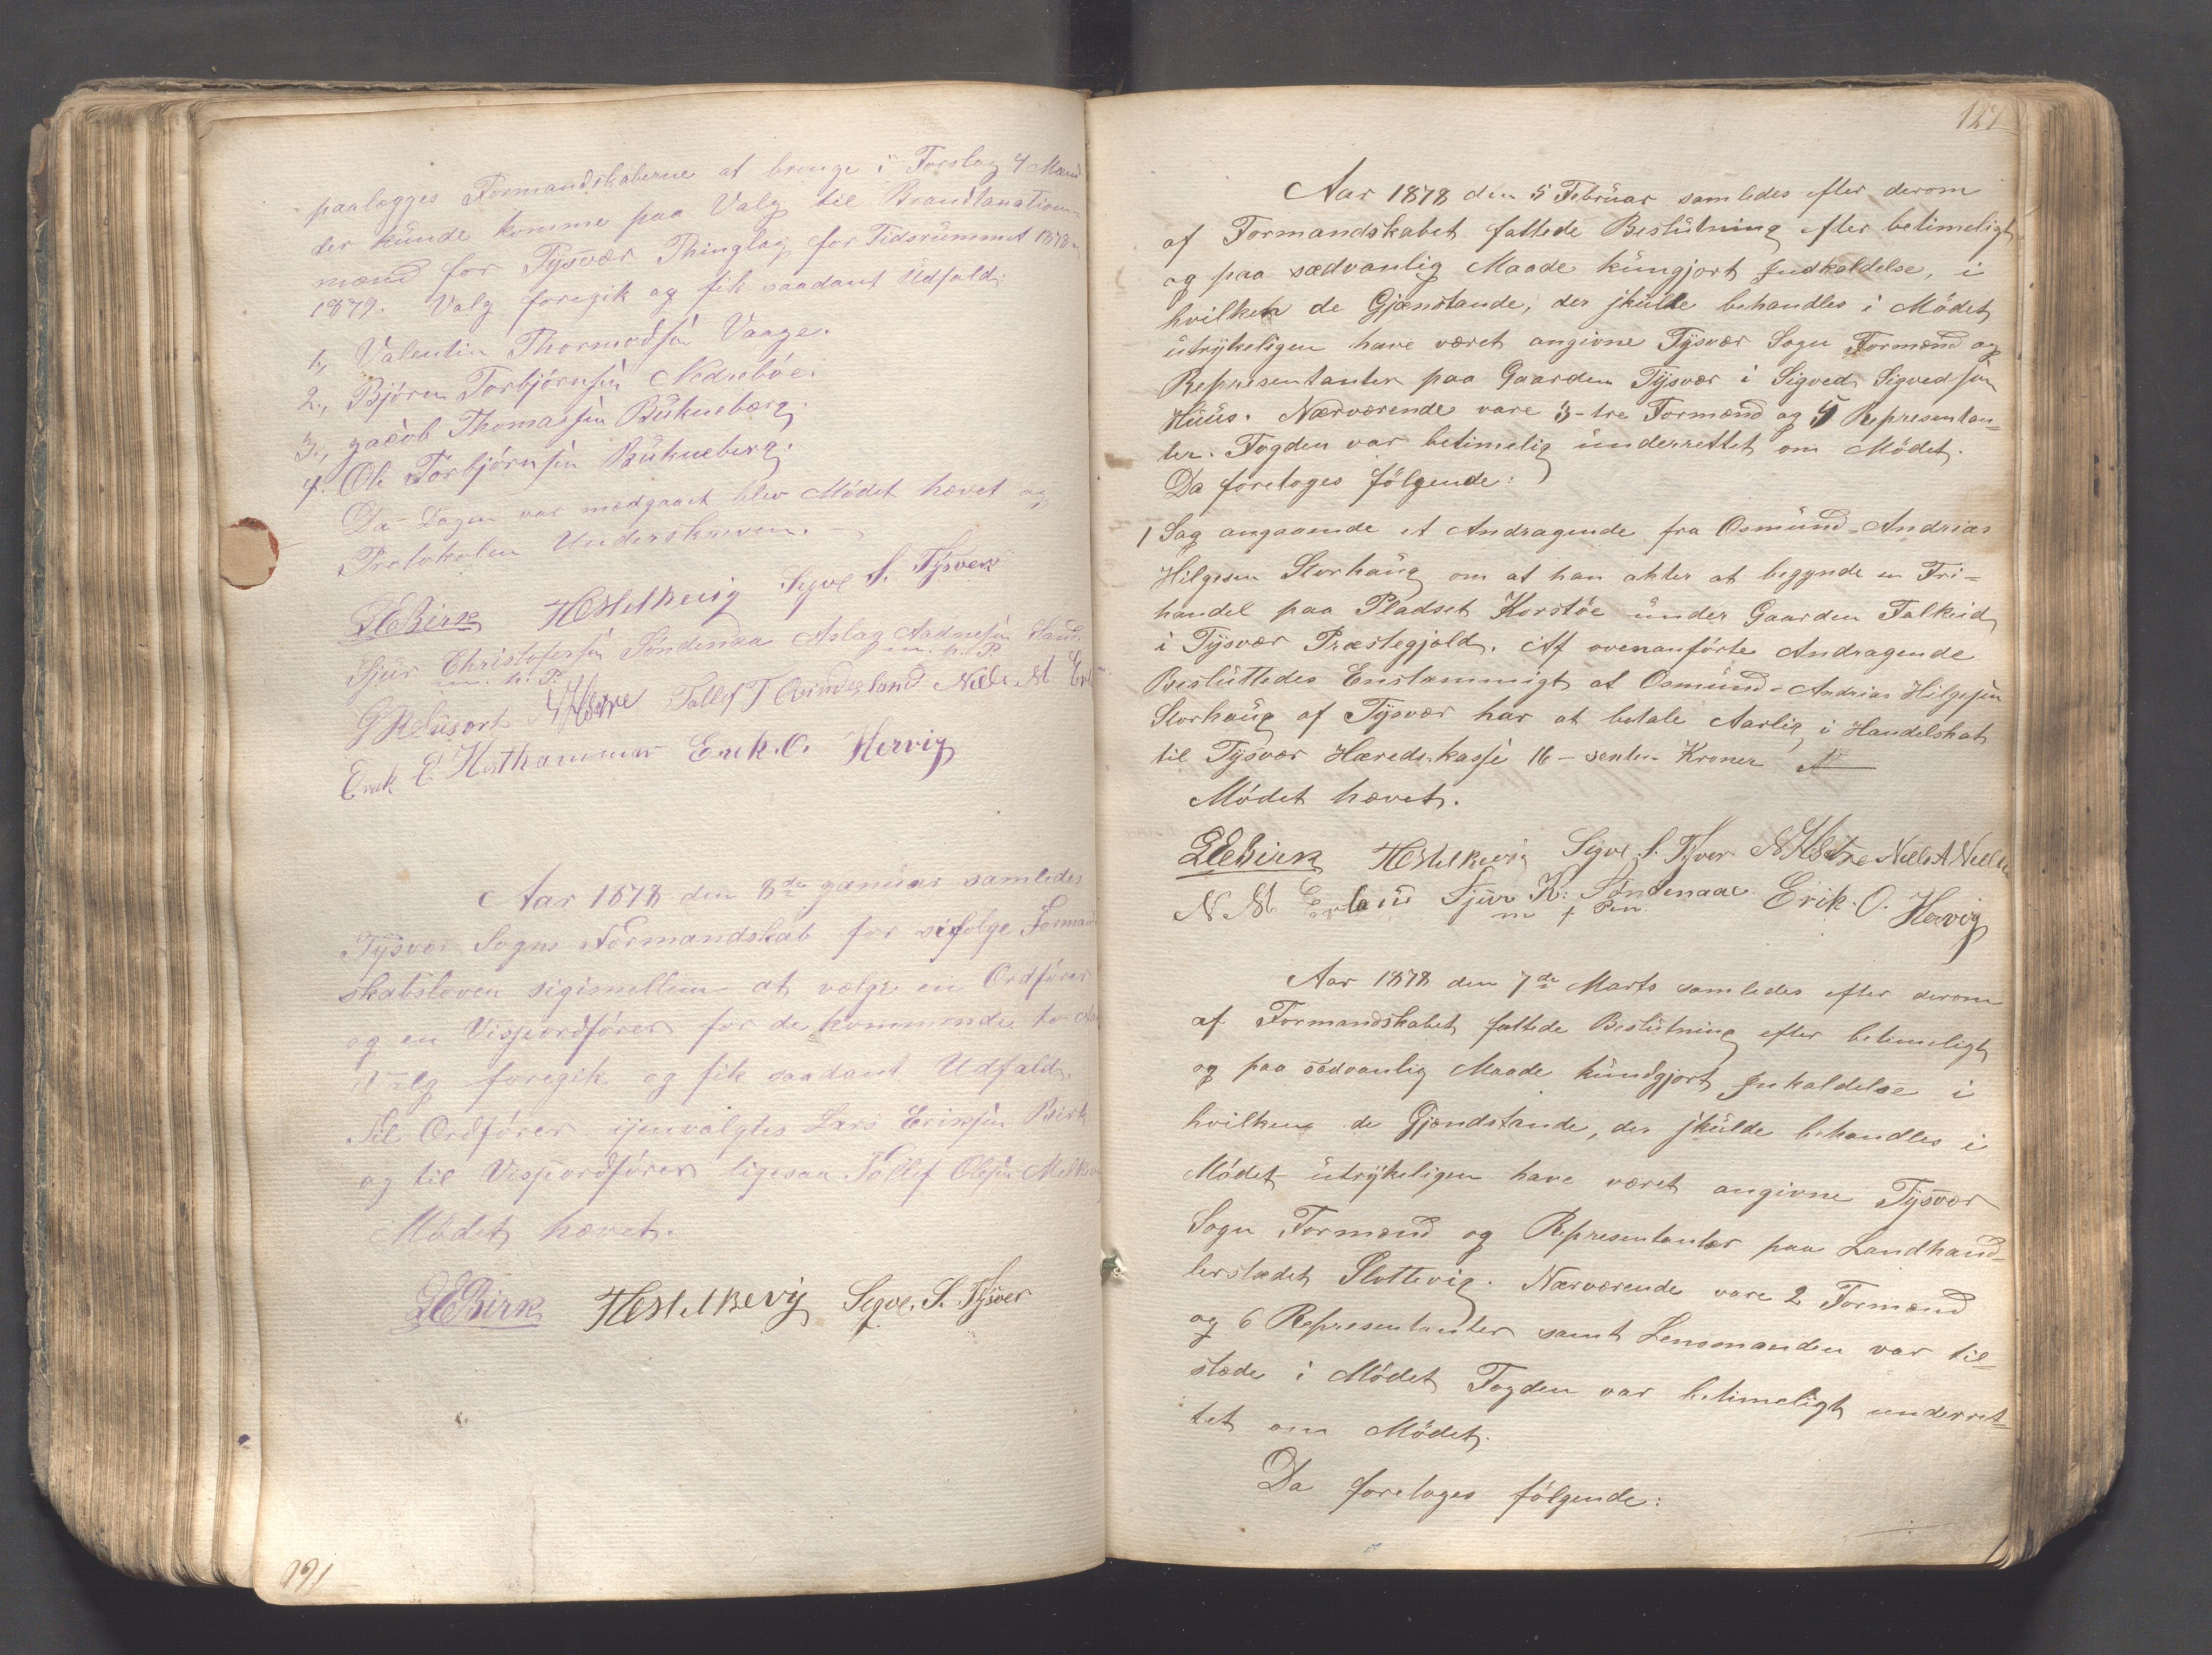 paalægges Formandskaberne at bringe i Forslag 4 Mænd
der kunde komme paa Valg til Brandtaxations-
mænd for Tysvær Thinglag for Tidsrummet 1878-
1879. Valg foregik og fik saadant Udfald;
1, Valentin Thormodsøn Vaage.
2, Bjørn Torbjørnsøn Nedrebøe.
3., Jacob Thomassøn Buknebærg.
4. Ole Torbjørnsøn Bukneberg.
Da Dagen var medgaaet blev Mødet hævet og
Protokolen Underskreven.
LEBirk Sigve S. Tysver
Sjur Christofersøn Søndenaa Aslag Aadnesøn Sand.
m. h. P. m. h. P.
Tollef T Aarinderland Niels M
Erik E Hesthammar Erik. O. Hervig
Aar 1878 den 8de Januar samledes
Tysvær Sogns Formandskab for vifølge Formand
skabsloven sigimellem at vælge en Ordfører
og en Viseordfører for de kommende to Aar
Valg foregik og fik saadant Udfald.
Til Ordfører ijenvalgtes Lars Eriksøn Birk
og til Viseordfører ligesaa Tollef Olsøn
Mødet hævet.
LEBirk Sigve. S. Tysver
191
127
Aar 1878 den 5 Februar samledes efter derom
af Formandskabet fattede Beslutning efter betimeligt
og paa sædvanlig Maade kungjort Indkaldelse, i
hvilken de Gjænstande, der skulde behandles i Mødet
utrykeligen have været angivne Tysvær Sogn Formænd og
Representanter paa Gaarden Tysvær i Sigved Sigvedsøn
Huus. Nærværende vare 3-tre Formænd og 5 Representan-
ter. Fogden var betimelig underrettet om Mødet.
Da foretoges følgende:
1 Sag angaaende et Andragende fra Osmund-Andrias
Hilgesen Storhaug om at han akter at begynde en Fri-
handel paa Pladset Korstøe under Gaarden Falkeid
i Tysvær Præstegjæld. Af ovenanførte Andragende
Besluttedes Enstæmmigt at Osmund-Andrias Hilgesøn
Storhaug af Tysvær har at betale Aarlig i Handelskat
til Tysvær Hæreds.kasse 16-sexten Kroner
Mødet hævet.
LEBirk Sigve. S. Tysver Niels A Niels
N M Erland Sjur K: Søndenaae Erik. O. Hervig
m f Pen.
Aar 1878 den 7de Marts samledes efter derom
af Formandskabet fattede Beslutning efter betimeligt
og paa sædvanlig Maade kundgjort Inkaldelse i
hvilken de Gjændstande, der skulde behandles i
Mødet utrykeligen have været angivne Tysvær
Sogn Formænd og Representanter paa Landhand-
lerstædet Slottevig. Nærværende vare 2 Formænd
og 6 Representanter samt Lensmanden var til-
stæde i Mødet Fogden var betimeligt underret-
tet om Mødet.
Da foretoges følgende: